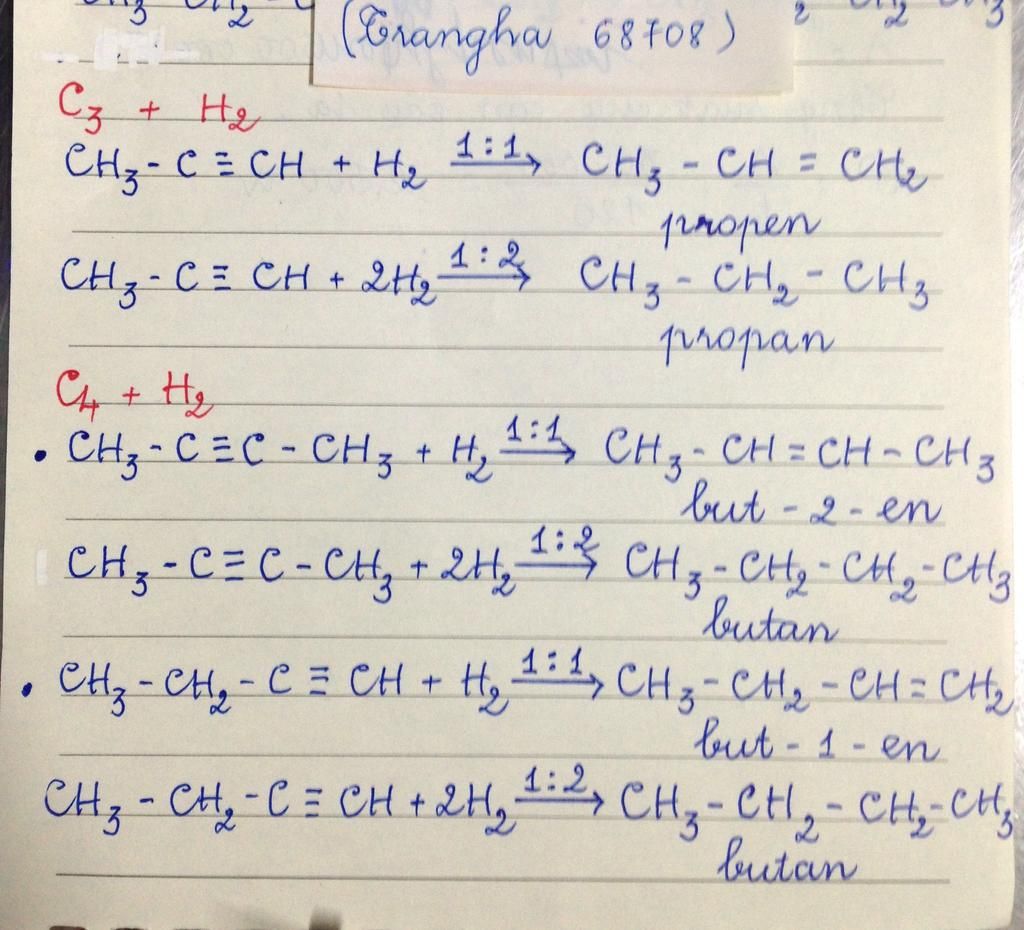 (Trangha 68708)
C₃ + H₂
CH₃ - C ≡ CH + H₂ —1:1→ CH₃ - CH = CH₂
propen
CH₃ - C ≡ CH + 2H₂ —1:2→ CH₃ - CH₂ - CH₃
propan
C₄ + H₂
• CH₃ - C ≡ C - CH₃ + H₂ —1:1→ CH₃ - CH = CH - CH₃
but - 2 - en
CH₃ - C ≡ C - CH₃ + 2H₂ —1:2→ CH₃ - CH₂ - CH₂ - CH₃
butan
• CH₃ - CH₂ - C ≡ CH + H₂ —1:1→ CH₃ - CH₂ - CH = CH₂
but - 1 - en
CH₃ - CH₂ - C ≡ CH + 2H₂ —1:2→ CH₃ - CH₂ - CH₂ - CH₃
butan